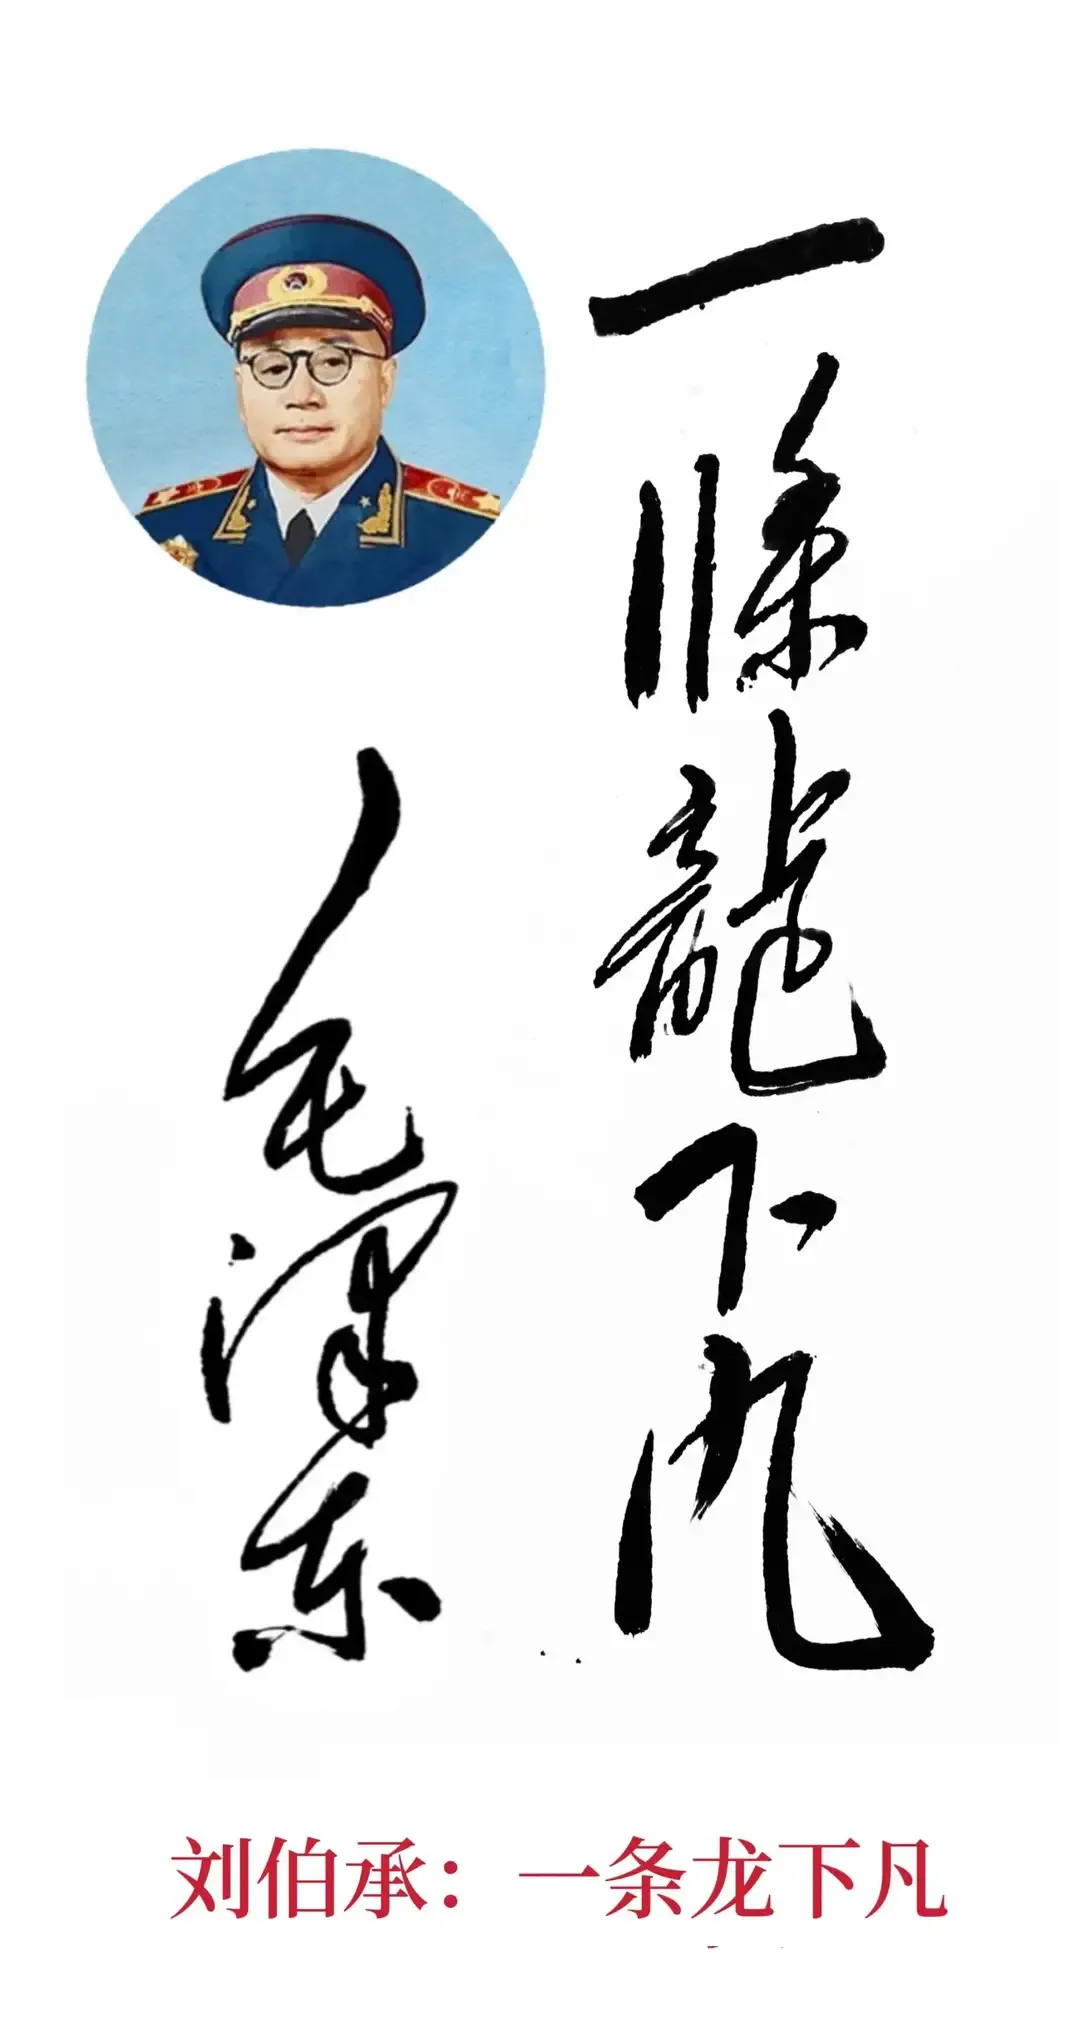 一條龍下凡
毛泽东
刘伯承：一条龙下凡